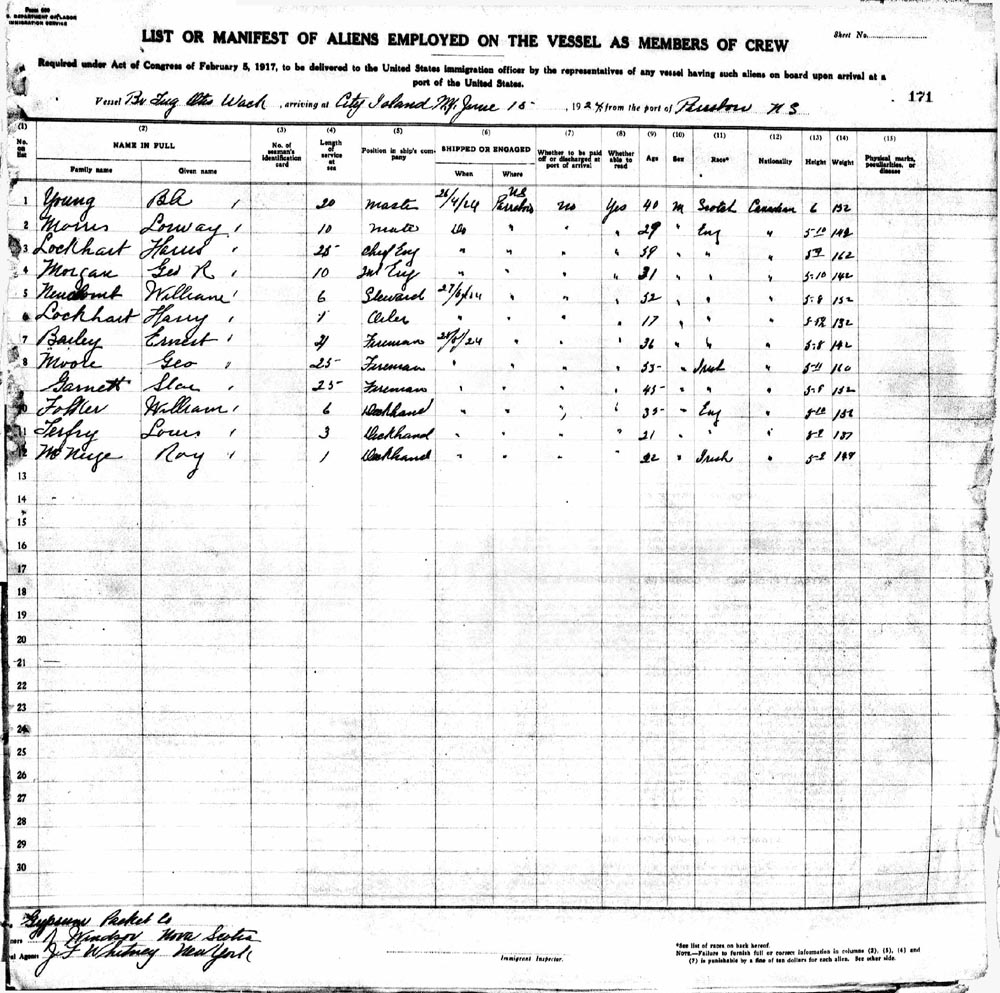 Form 680
U. S. DEPARTMENT OF LABOR
IMMIGRATION SERVICE
Sheet No.
LIST OR MANIFEST OF ALIENS EMPLOYED ON THE VESSEL AS MEMBERS OF CREW
Required under Act of Congress of February 5, 1917, to be delivered to the United States immigration officer by the representatives of any vessel having such aliens on board upon arrival at a
port of the United States.
Vessel Br Tug Otis Wack, arriving at City Island N.Y. June 15, 1924, from the port of Parrsboro N S
171
(1) (2) (3) (4) (5) (6) (7) (8) (9) (10) (11) (12) (13) (14) (15)
No. on list NAME IN FULL Family name Given name No. of seaman's identification card Length of service at sea Position in ship's company SHIPPED OR ENGAGED When Where Whether to be paid off or discharged at port of arrival Whether able to read Age Sex Race* Nationality Height Weight Physical marks, peculiarities, or disease
1 Young 20 Master 26/4/24 NS Parrsboro no Yes 40 m Scotch Canadian 6 192
2 Morris Conway 10 Mate Do " " " 29 " Eng " 5-10
3 Lockhart Harris 25 Chef Eng " " " " 59 " " " 162
4 Morgan Geo R 10 2nd Eng " " " " 31 " " " 5-10 142
5 Newcomb William 6 Steward " " " 52 " " " 5-8 152
6 Lockhart Harry 1 Oiler " " " " 17 " " " 132
7 Bailey Ernest 21 Fireman " " " 36 " " " 5-8 142
8 Moore Geo 25 Fireman " " " " 55 " Irish " 5-11
9 Garnett 25 Fireman " " " " 45 " " " 5-8 152
10 William 6 Deckhand " " " " 35 " Eng " 5-10
11 Terfry Louis 3 Deckhand " " " " 21 " " " 137
12 Roy 1 Deckhand " " " " 22 " Irish " 5-8
13
14
15
16
17
18
19
20
21
22
23
24
25
26
27
28
29
30
Gypsum Packet Co
Windsor Nova Scotia
J F Whitney New York
Immigrant Inspector.
*See list of races on back hereof.
NOTE.—Failure to furnish full or correct information in columns (2), (5), (6) and
(7) is punishable by a fine of ten dollars for each alien. See other side.